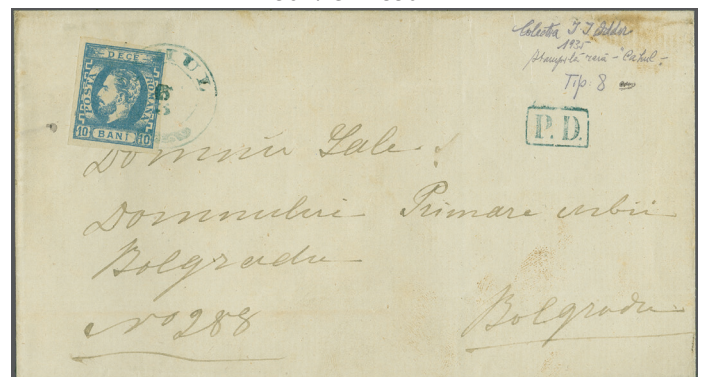 DECE
POSTA ROMANA
10 BANI 10
UL
P.D.
Colectia I I
1935
Stampilă rară - "Cahul" -
Tip 8
Domniei Sale
Domnului Primare urbii
Bolgradu
No 288
Bolgradu